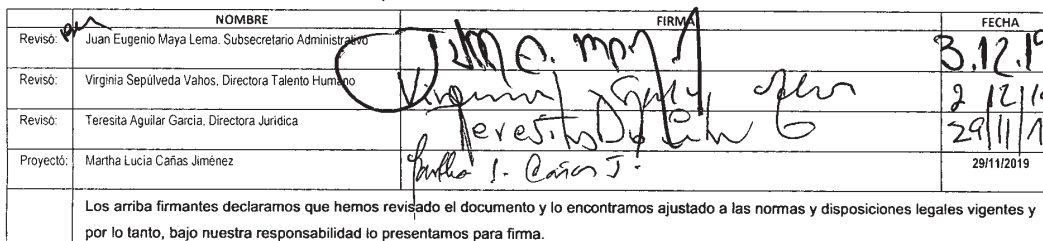 NOMBRE FIRMA FECHA
Revisó: Juan Eugenio Maya Lema. Subsecretario Administrativo 3.12.19
Revisó: Virginia Sepúlveda Vahos, Directora Talento Humano Virginia 2 12/19
Revisó: Teresita Aguilar García, Directora Jurídica Teresita 29/11/1
Proyectó: Martha Lucía Cañas Jiménez Martha L. Cañas J. 29/11/2019
Los arriba firmantes declaramos que hemos revisado el documento y lo encontramos ajustado a las normas y disposiciones legales vigentes y
por lo tanto, bajo nuestra responsabilidad lo presentamos para firma.